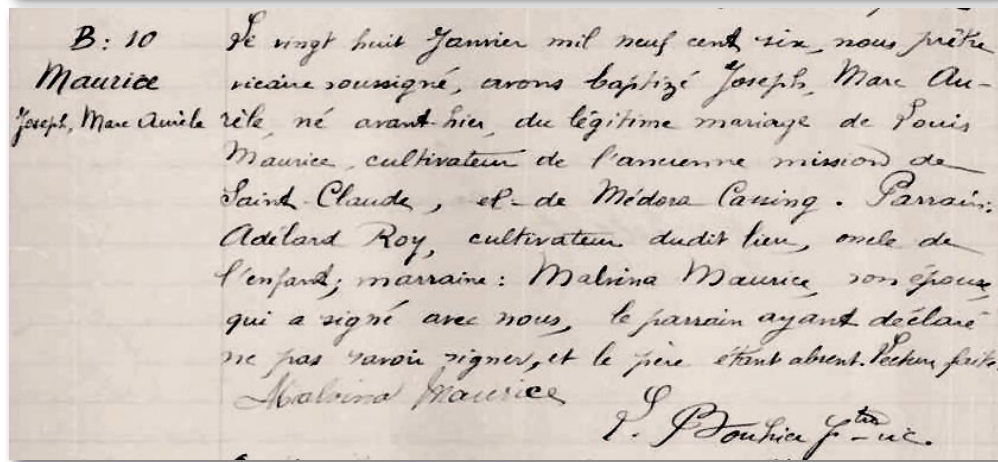 B: 10
Maurice
Joseph, Marc Aurèle
Le vingt huit Janvier mil neuf cent six, nous prêtre
vicaire soussigné, avons baptizé Joseph, Marc Au-
rèle, né avant-hier, du légitime mariage de Louis
Maurice, cultivateur de l'ancienne mission de
Saint-Claude, et de Médora Cassing. Parrain:
Adélard Roy, cultivateur dudit lieu, oncle de
l'enfant; marraine: Malvina Maurice, son épouse,
qui a signé avec nous, le parrain ayant déclaré
ne pas savoir signer, et le père étant absent. Lecture faite.
Malvina Maurice
L. Ptre vic.